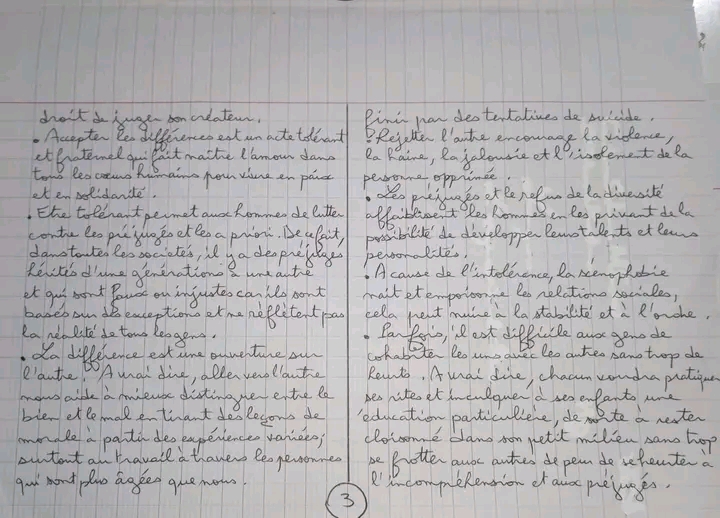 droit de juger son créateur.
• Accepter les différences est un acte tolérant
et fraternel qui fait naître l'amour dans
tous les cœurs humains pour vivre en paix
et en solidarité.
• Etre tolérant permet aux hommes de lutter
contre les préjugés et les a priori. De ce fait,
dans toutes les sociétés, il y a des préjugés
hérités d'une générations à une autre
et qui sont faux ou injustes car ils sont
basés sur des exceptions et ne réflètent pas
la réalité de tous les gens.
• La différence est une ouverture sur
l'autre. A vrai dire, aller vers l'autre
nous aide à mieux distinguer entre le
bien et le mal en tirant des leçons de
morale à partir des expériences variées;
surtout au travail à travers les personnes
qui sont plus âgées que nous.
finir par des tentatives de suicide.
• Rejetter l'autre encourage la violence,
la haine, la jalousie et l'isolement de la
personne opprimée.
• Les préjugés et le refus de la diversité
affaiblissent les hommes en les privant de la
possibilité de développer leurs talents et leurs
personalités.
• A cause de l'intolérence, la scénophobie
nait et empoisonne les relations sociales,
cela peut nuire à la stabilité et à l'ordre.
• Parfois, il est difficile aux gens de
cohabiter les uns avec les autres sans trop de
heurts. A vrai dire, chacun voudra pratiquer
ses rites et inculquer à ses enfants une
éducation particulière, de sorte à rester
cloisonné dans son petit milieu sans trop
se frotter aux autres de peur de se heurter à
l'incompréhension et aux préjugés.
3